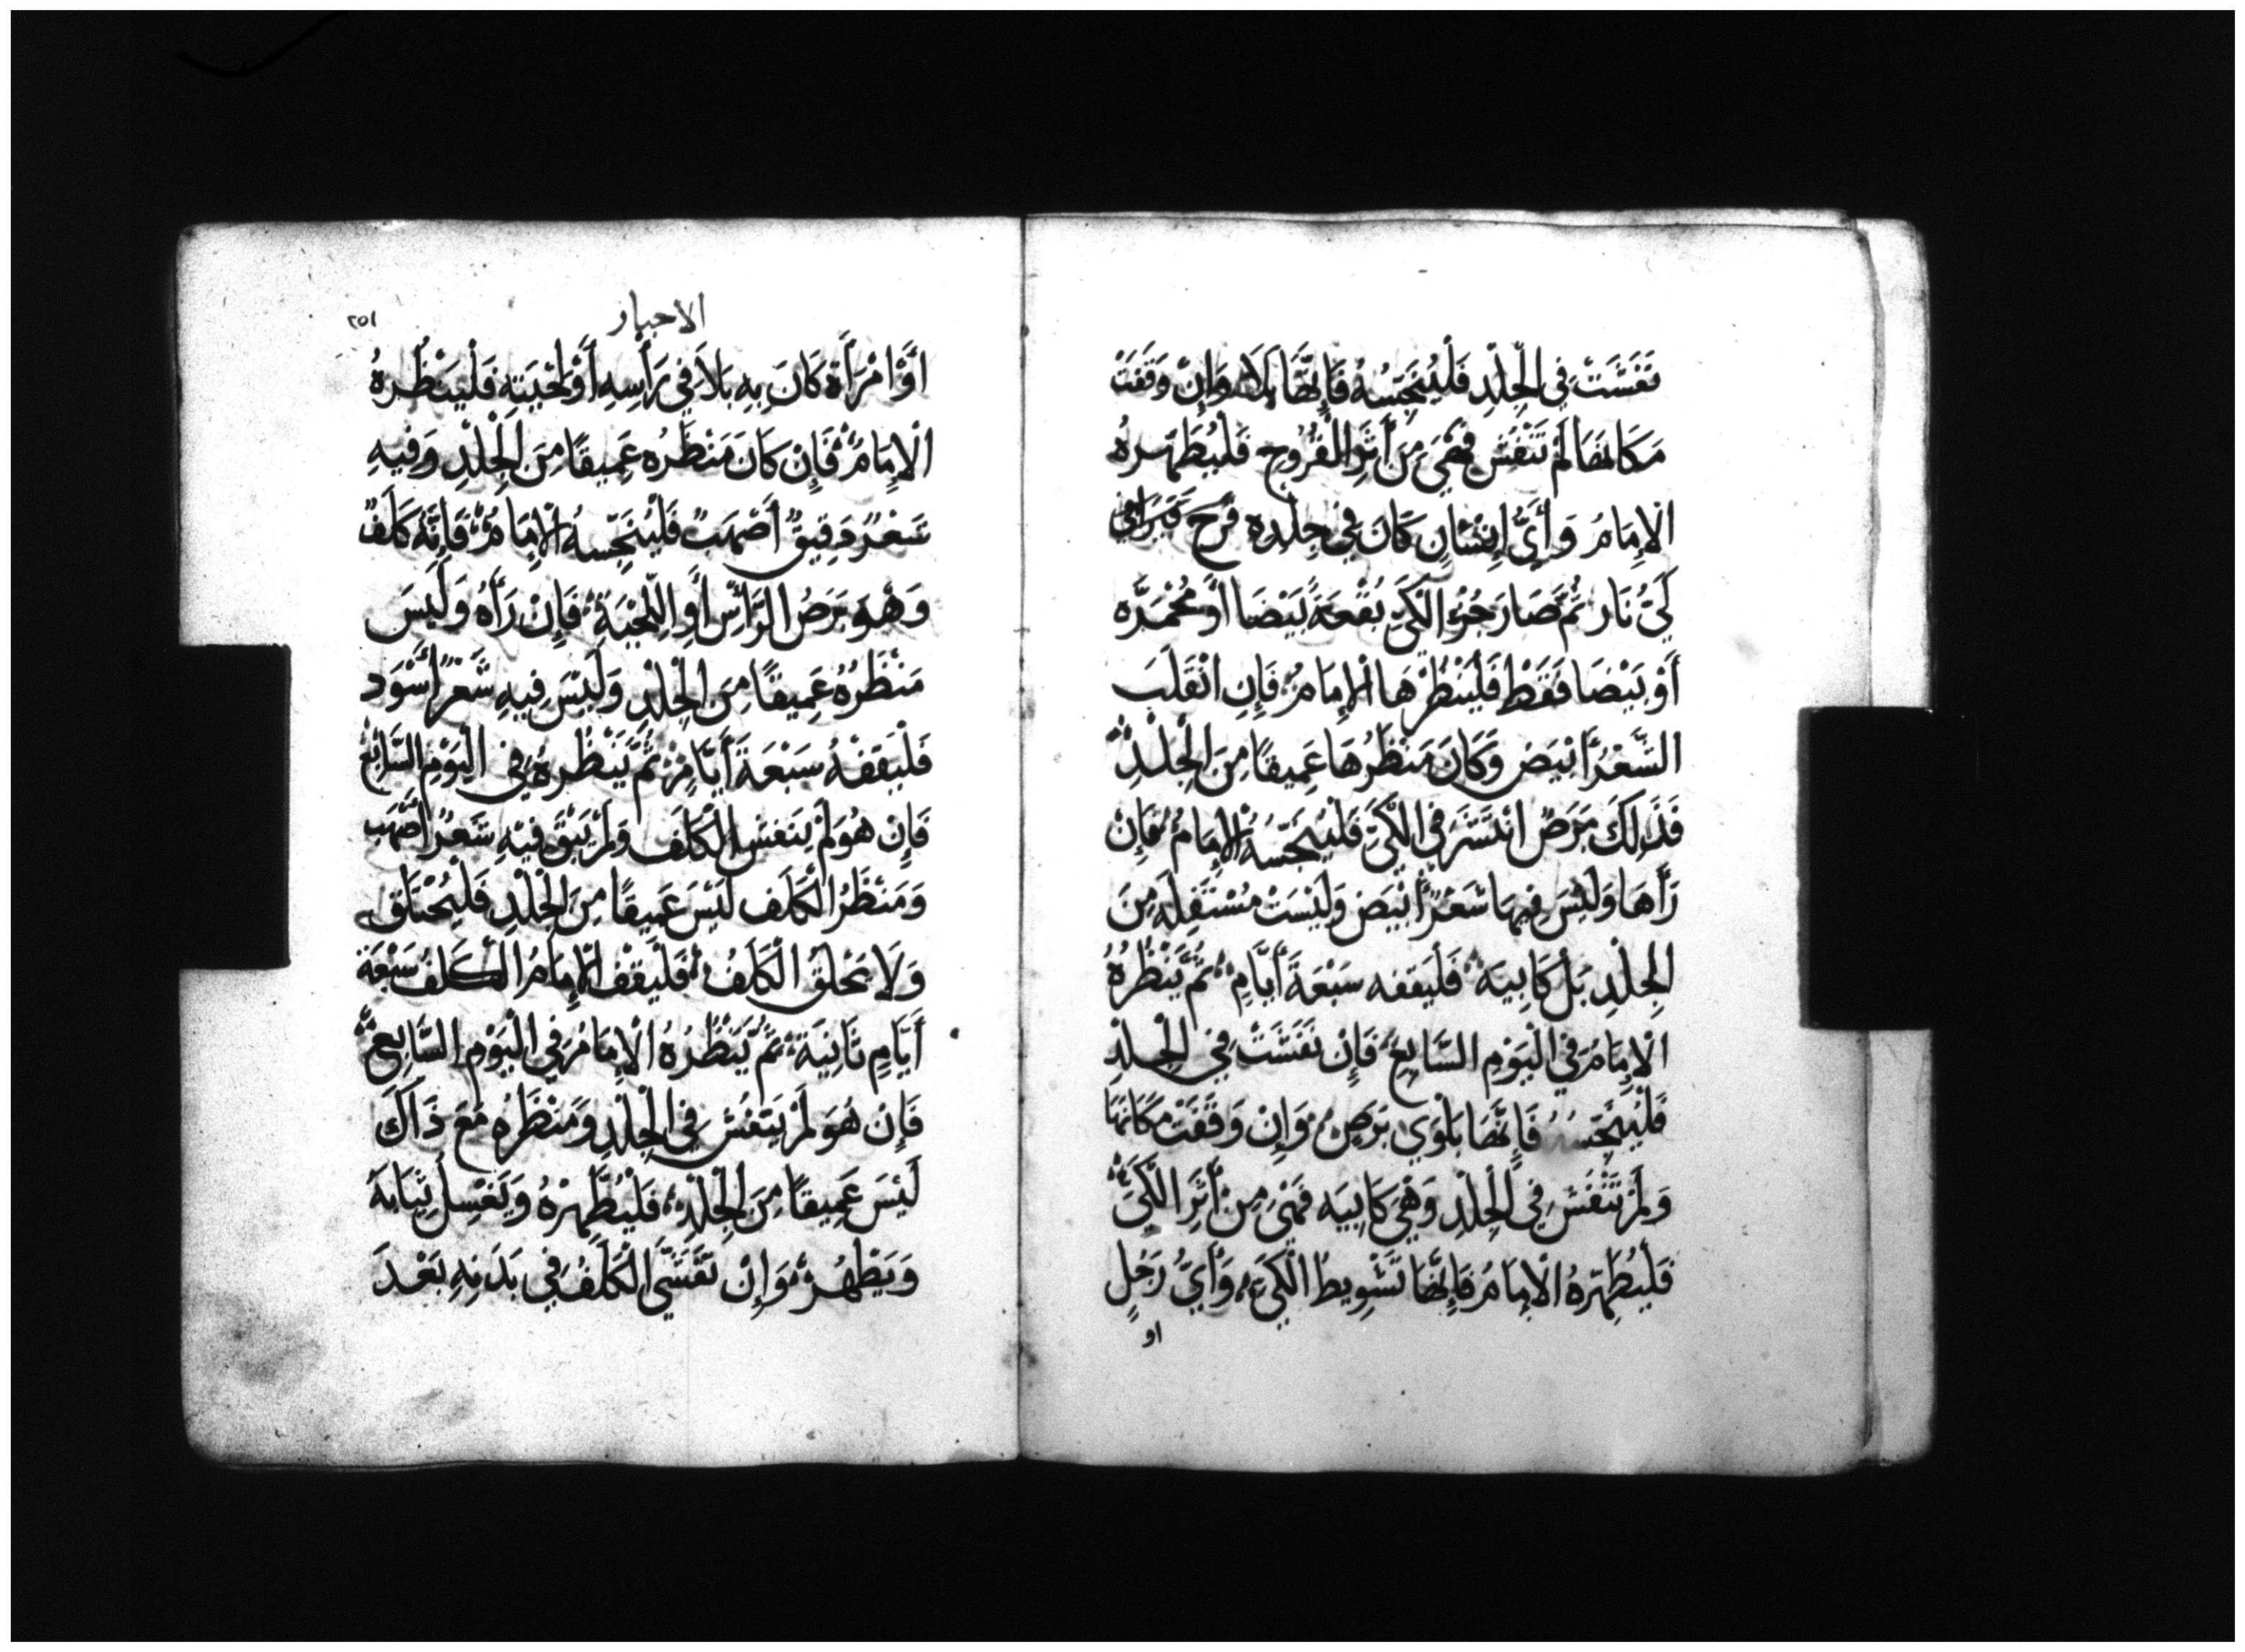 تَفَشَّتْ فِي الْجِلْدِ فَلْيُنَجِّسُهُ فَإِنَّهَا بَلَاء وَإِنْ وَقَفَتْ
مَكَانَهَا لَمْ تَتَفَشَّ فَهْيَ مِنْ أَثَرِ الْقُرُوحِ فَلْيُطَهِّرهُ
الْإِمَامُ وَأَيُّ إِنْسَانٍ كَانَ فِي جِلْدِهِ قَرْح فَبَرَا فِي
كَيِّ نَار ثُمَّ صَارَ جُزْء الْكَيِّ بُقْعَةً بَيْضَا أَوْ مُحْمَرَّه
أَوْ بَيْضَا فَقَطْ فَلْيَنْظُرْهَا الْإِمَامُ فَإِنِ انْقَلَبَ
الشَّعْرُ أَبْيَضَ وَكَانَ مَنْظَرُهَا عَمِيقًا مِنَ الْجِلْدِ
فَذَلِكَ بَرَصٌ انْتَشَرَ فِي الْكَيِّ فَلْيُنَجِّسْهُ الْإِمَامُ فَإِنْ
رَأَهَا وَلَيْسَ فِيهَا شَعْرٌ أَبْيَض وَلَيْسَتْ مُسْتَفِلَه مِنَ
الْجِلْدِ بَلْ كَابِيَه فَلْيَقفه سَبْعَةَ أَيَّامٍ ثُمَّ يَنْظُرُهُ
الْإِمَامُ فِي الْيَوْمِ السَّابِعِ فَإِنْ تَفَشَّتْ فِي الْجِلْدِ
فَلْيُنَجِّسُهُ فَإِنَّهَا بَلْوَى بَرَصٍ وَإِنْ وَقَفَتْ مَكَانَهَا
وَلَمْ تَتَفَشَّ فِي الْجِلْدِ وَهْيَ كَابِيَه فَهْيَ مِنْ أَثَرِ الْكَيِّ
فَلْيُطَهِّرهُ الْإِمَامُ فَإِنَّهَا تَشْوِيطُ الْكَيِّ وَأَيُّ رَجُلٍ
او
الاحبار
٢٥١
أَوِ امْرَأَةٍ كَانَ بِهِ بَلَا فِي رَأْسِهِ أَوْ لِحْيَتِهِ فَلْيَنْظُرهُ
الْإِمَامُ فَإِنْ كَانَ مَنْظَرُه عَمِيقًا مِنَ الْجِلْدِ وَفِيهِ
شَعْرٌ دَقِيقٌ أَصْهَبُ فَلْيُنَجِّسهُ الْإِمَامُ فَإِنَّهُ كَلَفٌ
وَهْوَ بَرَصُ الرَّأْسِ أَوِ اللِّحْيَةِ فَإِنْ رَأَهُ وَلَيْسَ
مَنْظَرُهُ عَمِيقًا مِنَ الْجِلْدِ وَلَيْسَ فِيهِ شَعْرٌ أَسْوَد
فَلْيَقفْهُ سَبْعَةَ أَيَّامٍ ثُمَّ يَنْظُرهُ فِي الْيَوْمِ السَّابِعِ
فَإِنْ هُوَ لَمْ يَتَفَشَّ الْكَلَف وَلَمْ يَبْقَ فِيهِ شَعْرٌ أَصْهَب
وَمَنْظَرُ الْكَلَفِ لَيْسَ عَمِيقًا مِنَ الْجِلْدِ فَلْيُحْتَلَق
وَلَا يَحْلقُ الْكَلَفُ فَلْيَقف الْإِمَامُ الْكَلَفُ سَبْعَة
أَيَّامٍ ثَانِيَة ثُمَّ يَنْظُرُهُ الْإِمَامُ فِي الْيَوْمِ السَّابِعِ
فَإِن هُوَ لَمْ يَتَفَشَّ فِي الْجِلْدِ وَمَنْظَرُهُ مَعَ ذَاكَ
لَيْسَ عَمِيقًا مِنَ الْجِلْدِ فَلْيُطَهِّرْهُ وَيَغْسِل ثِيَابَهُ
وَيَطْهُرُ وَإِنْ تَفَشَّى الْكَلَفُ فِي بَدَنِهِ بَعْدَ